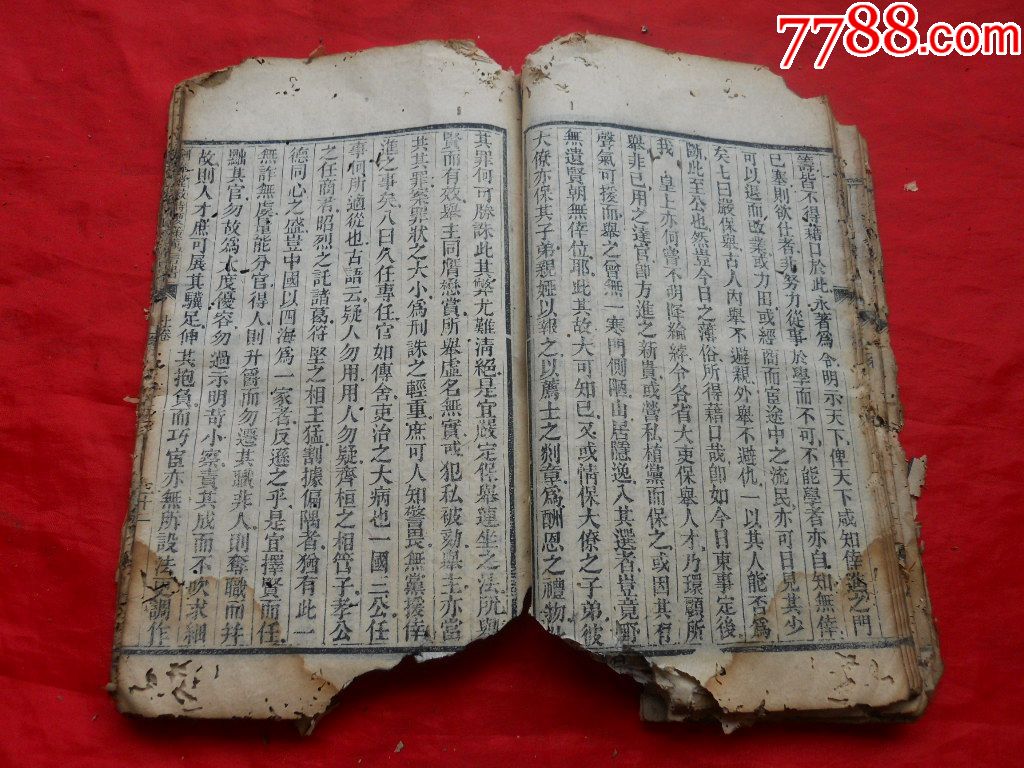 7788.com
籌皆不得藉口於此永著為令明示天下俾天下咸知倖進之門
已塞則欲仕者非努力從事於學而不可不能學者亦自知無倖
可以退而改業或力田或經商而宦途中之流民亦可日見其少
矣七曰嚴保舉古人內舉不避親外舉不避仇一以其人能否為
斷此至公也然豈今日之薄俗所得藉口哉卽如今日東事定後
我 皇上亦何嘗不明降綸綍令各省大吏保舉人才乃環顧所
舉非已用之達官卽方進之新貴或營私植黨而保之或因其有
聲氣可援而舉之曾無一寒門側陋山居隱逸入其選者豈竟野
無遺賢朝無倖位耶此其故大可知已又或情保大僚之子弟彼
大僚亦保其子弟親婭以報之以薦士之剡章為酬恩之禮物
其罪何可勝誅此其弊尤難清絕是宜嚴定保舉連坐之法所舉
賢而有效舉主同膺懋賞所舉虛名無實或犯私被劾舉主亦當
共其罪案罪狀之大小為刑誅之輕重庶可人知警畏無黨援倖
進之事矣八曰久任專任官如傳舍吏治之大病也一國三公任
事何所適從也古語云疑人勿用用人勿疑齊桓之相管子孝公
之任商君昭烈之託諸葛符堅之相王猛割據偏隅者猶有此一
德同心之盛豈中國以四海為一家者反遜之乎是宜擇賢而任
無詐無虞量能分官得人則升爵而勿遷其職非人則奪職而幷
黜其官勿故為大度優容勿過示明苛小察責其成而不吹求細
故則人才庶可展其驥足伸其抱負而巧宦亦無所設法調作